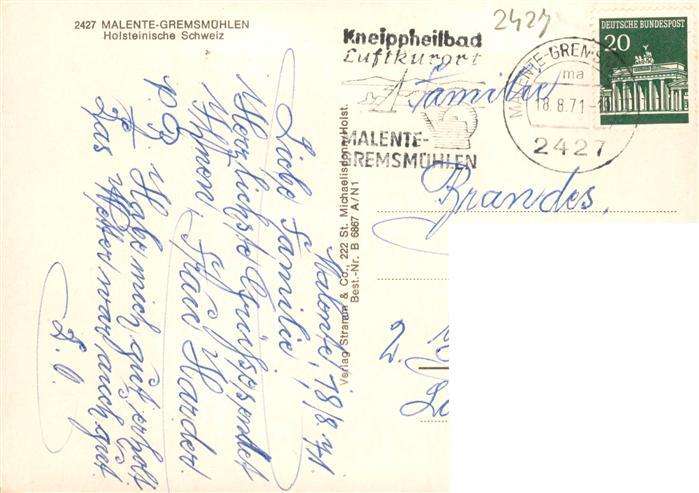 2427 MALENTE-GREMSMÜHLEN
Holsteinische Schweiz
Malente, 18/8.71.
Liebe Familie,
Herzlichste Grüße sendet
Ihnen, Frau Harder
P.S. Habe mich gut erholt
Das Wetter war auch gut
D.O.
Verlag Stramm & Co., 222 St. Michaelisdonn/Holst.
Best.-Nr. B 6867 A/N1
2427
Kneippheilbad
Luftkurort
MALENTE-
GREMSMÜHLEN
MALENTE-GREMS
ma
18.8.71-
2427
DEUTSCHE BUNDESPOST
20
Familie
Brandes,
2.